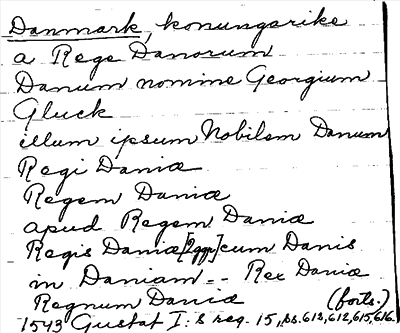 Danmark, konungarike
a Rege Danorum
Danum nomine Georgium
Gluck
illum ipsum Nobilem Danum
Regi Daniæ
Regem Daniæ
apud Regem Daniæ
Regis Daniæ [2gg] cum Danis
in Daniam -- Rex Daniæ
Regnum Daniæ (forts.)
1543 Gustaf I:s reg. 15, ss. 613, 612, 615, 616.